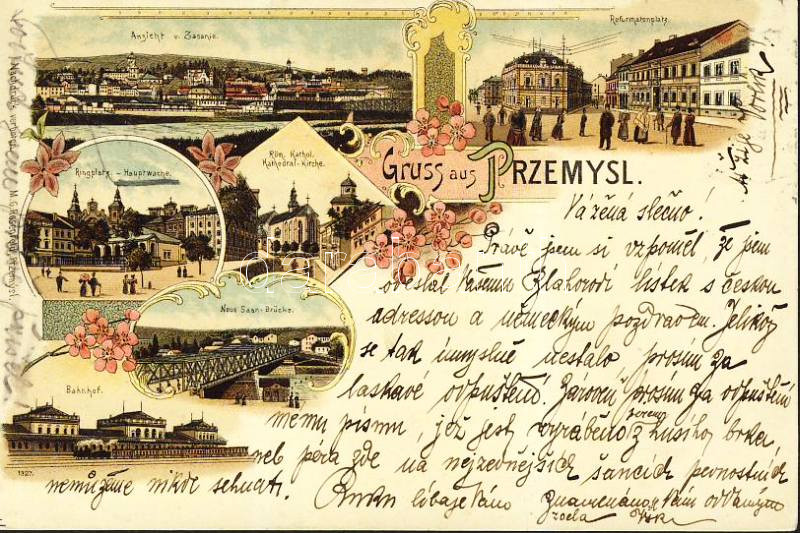 Ansicht v. Zasanie.
Reformatenplatz.
Ringplatz. - Hauptwache.
Röm. Kathol.
Kathedral-Kirche.
Gruss aus PRZEMYSL.
Neue Saan-Brücke.
Bahnhof.
1927.
Vážená slečno!
Právě jsem si vzpoměl, že jsem
odeslal Vašemu Blahorodí lístek s českou
adressou a německým pozdravem. Jelikož
se tak úmyslně nestalo prosím za
laskavé odpuštění. Zároveň prosím za odpuštění
memu písmu, jež jest vyráběno z husího brka
neb péra zde na nejzevnějších šancích pevnostních
nemůžeme nikde sehnati.
Ruku líbaje Vám znamenám Vám oddaným
zcela